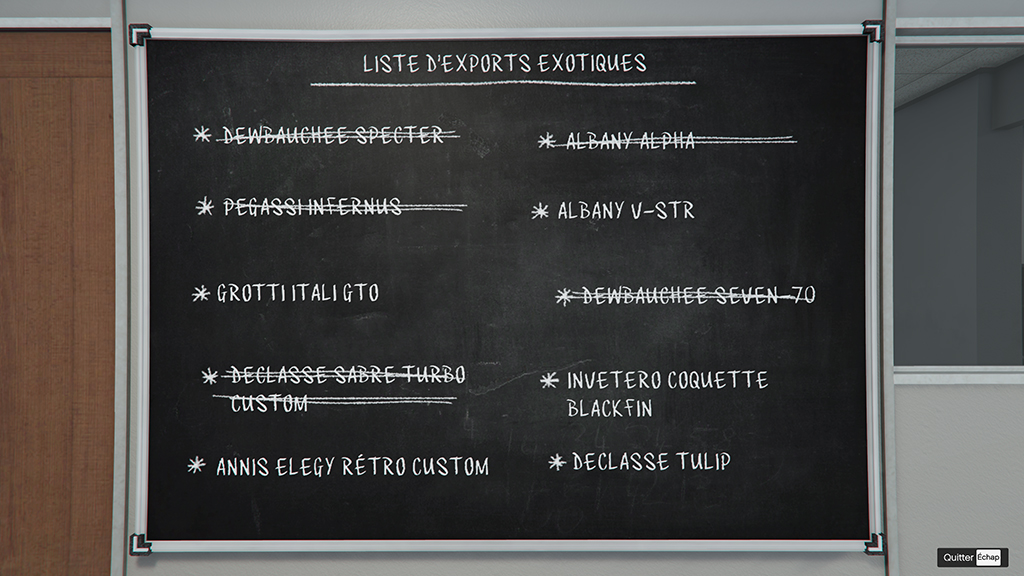 LISTE D'EXPORTS EXOTIQUES
* DEWBAUCHEE SPECTER
* PEGASSI INFERNUS
* GROTTI ITALI GTO
* DECLASSE SABRE TURBO
CUSTOM
* ANNIS ELEGY RÉTRO CUSTOM
* ALBANY ALPHA
* ALBANY V-STR
* DEWBAUCHEE SEVEN-70
* INVETERO COQUETTE
BLACKFIN
* DECLASSE TULIP
Quitter Échap